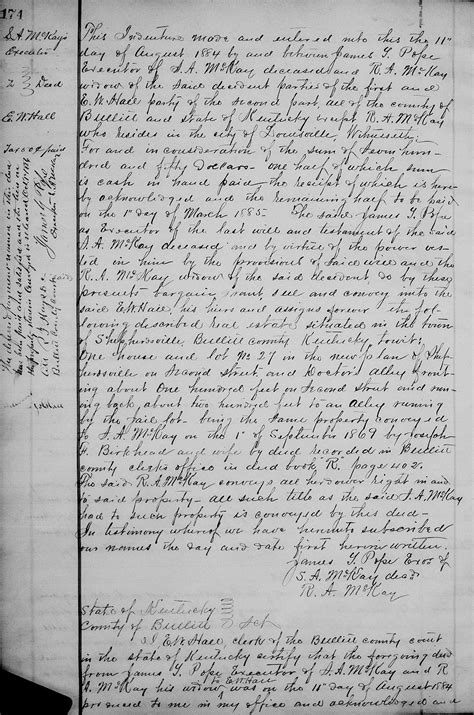 174
S. A. McKay's
Executor
To Deed
E. W. Hall
Tax 50¢ paid
This Indenture made and entered into this the 11th
day of August 1884 by and between James T. Pope
Executor of S. A. McKay deceased and R. A. McKay
widow of the said decedent parties of the first and
E. W. Hall party of the second part, all of the county of
Bullitt and state of Kentucky except R. A. McKay
who resides in the city of Louisville, Witnesseth,
For and in consideration of the sum of seven hun-
dred and fifty Dollars one half of which sum
is cash in hand paid the receipt of which is here-
by acknowledged and the remaining half to be paid
on the 1st day of March 1885. The said James T. Pope
as Executor of the last will and testament of the said
S. A. McKay deceased and by virtue of the power ves-
ted in him by the provisions of said will and the
R. A. McKay widow of the said decedent, do by these
presents bargain, grant, sell and convey unto the
said E. W. Hall, his heirs and assigns forever the fol-
lowing described real estate, situated in the town
of Shepherdsville, Bullitt County Kentucky to wit;
One house and lot No. 27 in the new plan of Shep-
herdsville on Second Street and Doctors alley, front-
ing about One hundred feet on Second Street and run-
ning back, about two hundred feet to an alley running
by the jail lot being the same property conveyed
to S. A. McKay on the 1st of September 1869 by Joseph
F. Birkhead and wife by deed recorded in Bullitt
county clerks office in deed book R. page 402.
The said R. A. McKay conveys all her dower right in and
to said property all such title as the said S. A. McKay
had to such property is conveyed by this deed
In testimony whereof we have hereunto subscribed
our names the day and date first herein written.
James T. Pope Exor of
S. A. McKay decd.
R. A. McKay
State of Kentucky
County of Bullitt Sct
I E. W. Hall, clerk of the Bullitt county court
in the state of Kentucky certify that the foregoing deed
from James T. Pope Executor of S. A. McKay and R
to E. W. Hall
A. McKay his widow was on the 11th day of August 1884
presented to me in my office and acknowledged and